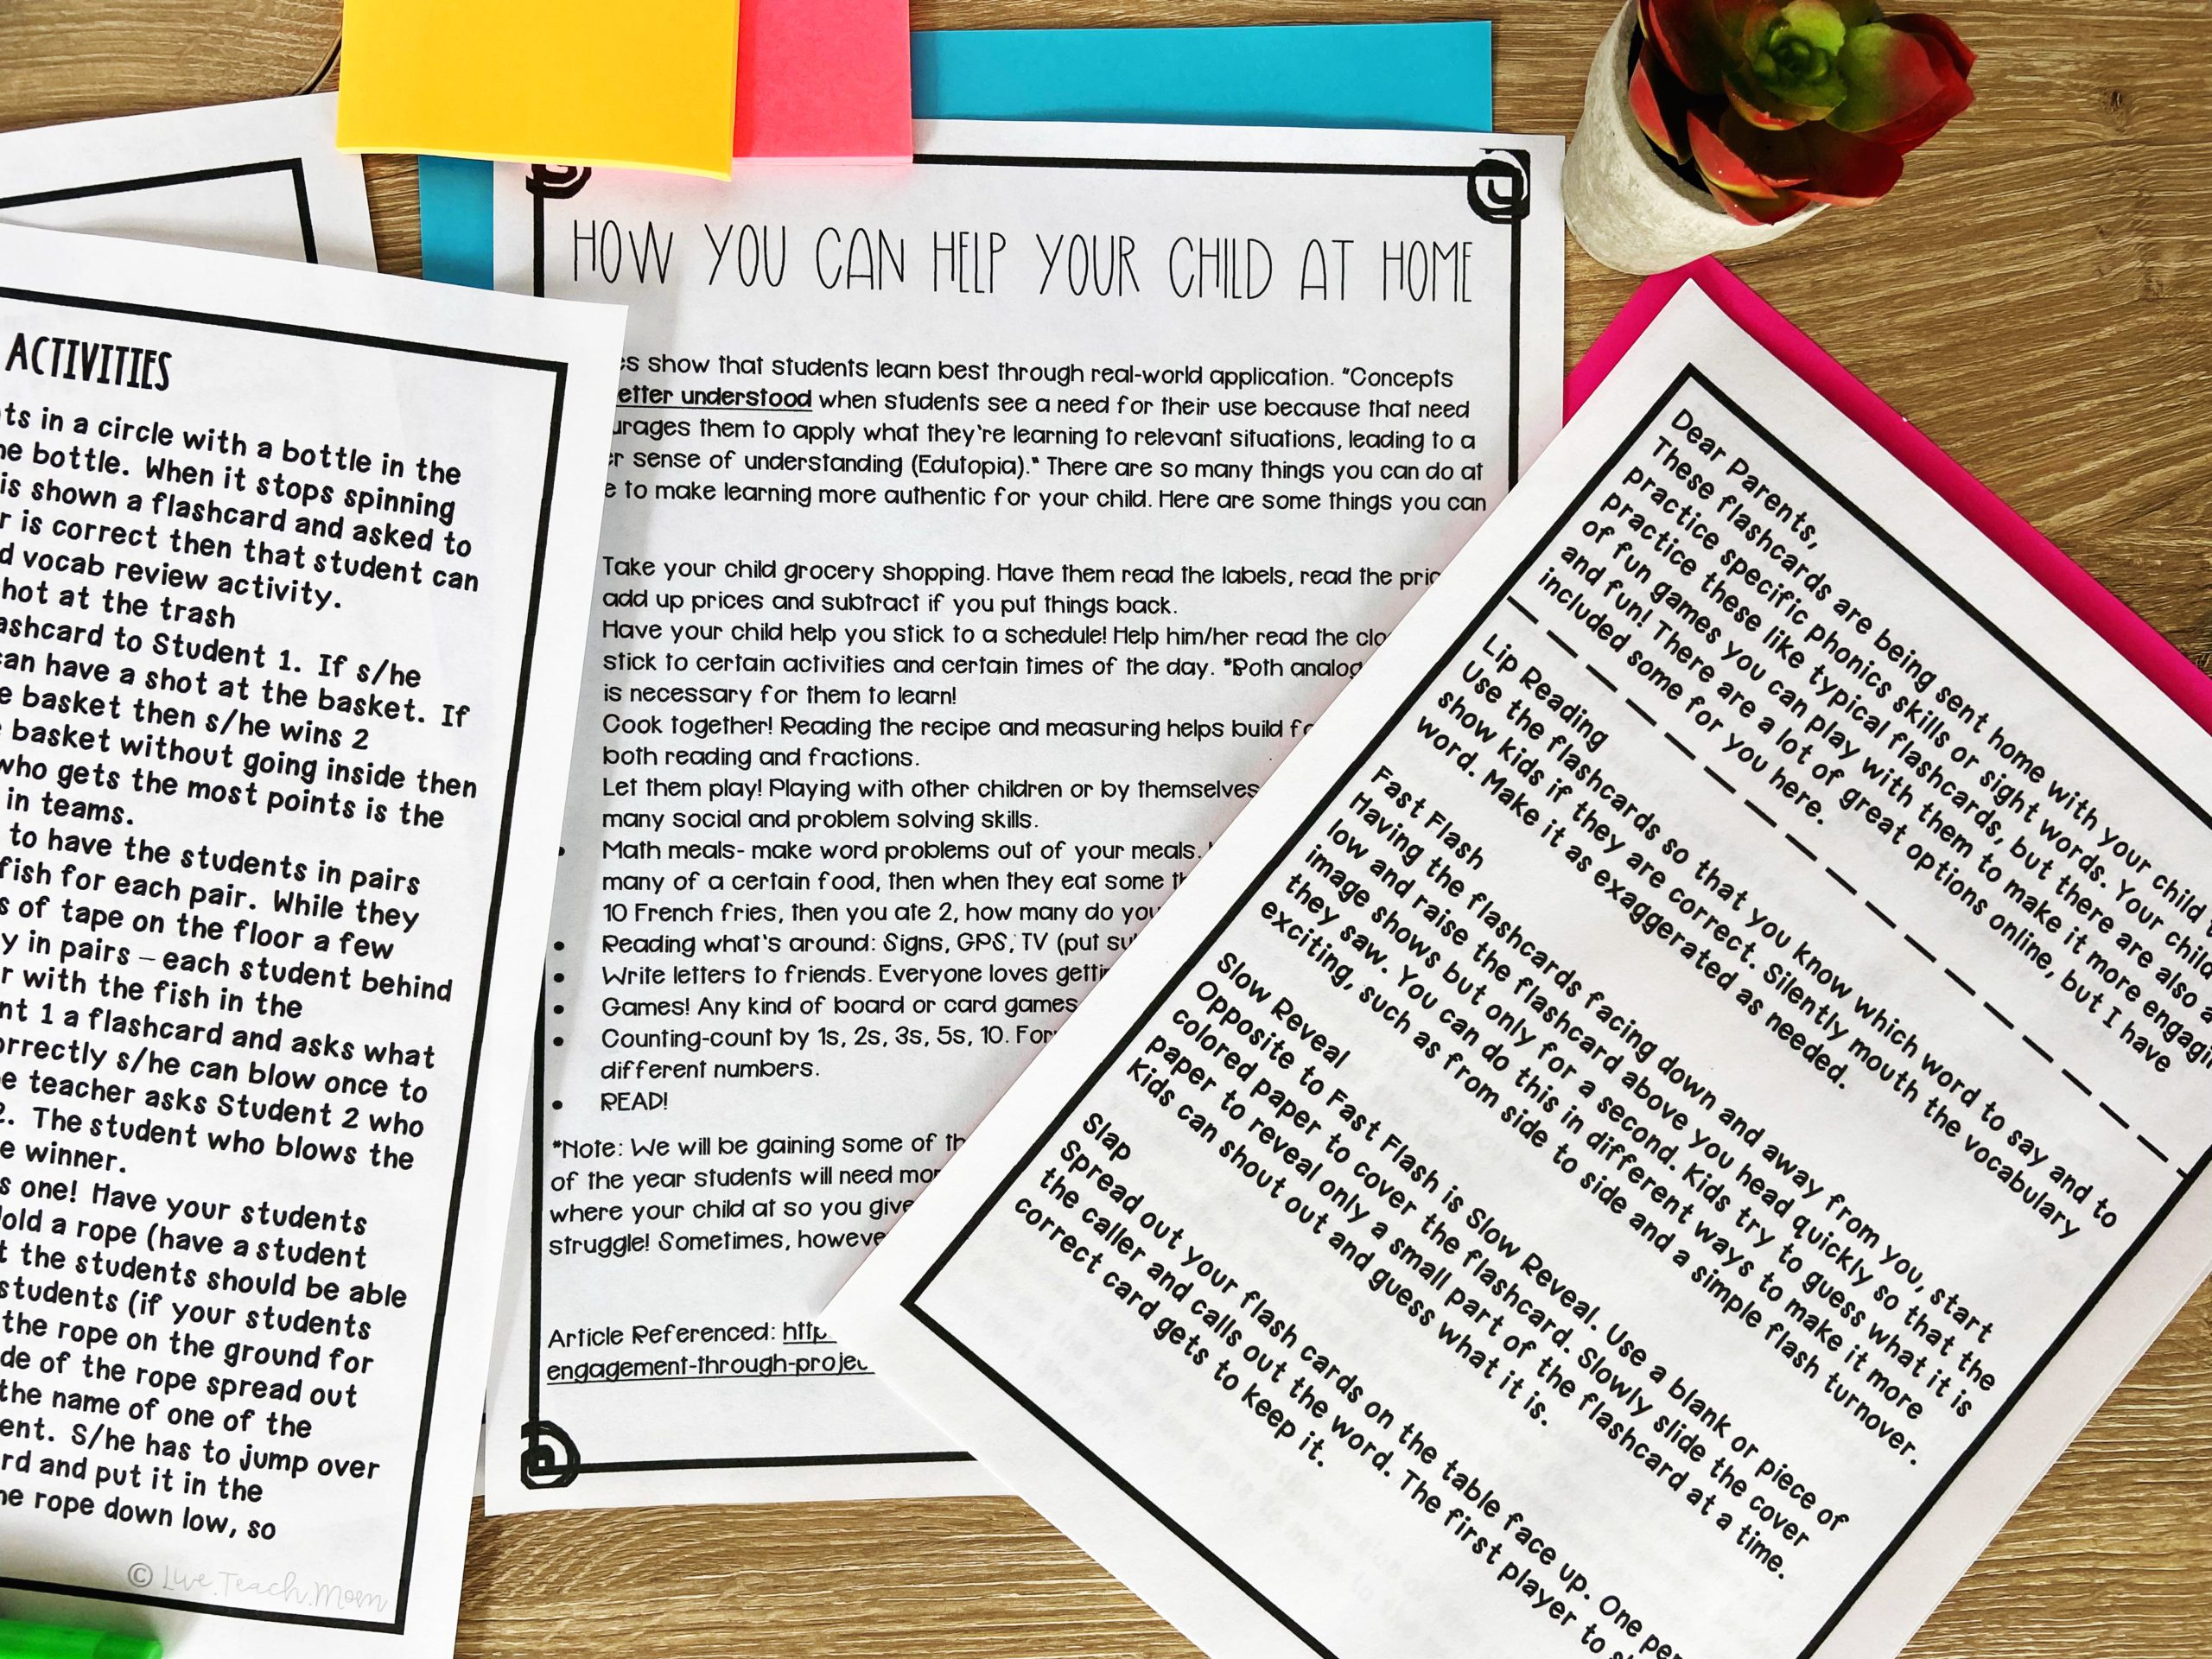 ACTIVITIES
ts in a circle with a bottle in the
he bottle. When it stops spinning
is shown a flashcard and asked to
r is correct then that student can
d vocab review activity.
hot at the trash
ashcard to Student 1. If s/he
can have a shot at the basket. If
e basket then s/he wins 2
basket without going inside then
who gets the most points is the
in teams.
to have the students in pairs
fish for each pair. While they
s of tape on the floor a few
y in pairs – each student behind
r with the fish in the
nt 1 a flashcard and asks what
orrectly s/he can blow once to
e teacher asks Student 2 who
2. The student who blows the
e winner.
s one! Have your students
old a rope (have a student
t the students should be able
students (if your students
the rope on the ground for
de of the rope spread out
the name of one of the
ent. S/he has to jump over
rd and put it in the
he rope down low, so
© Live.Teach.Mom
HOW YOU CAN HELP YOUR CHILD AT HOME
es show that students learn best through real-world application. "Concepts
etter understood when students see a need for their use because that need
urages them to apply what they're learning to relevant situations, leading to a
er sense of understanding (Edutopia)." There are so many things you can do at
e to make learning more authentic for your child. Here are some things you can
Take your child grocery shopping. Have them read the labels, read the pric
add up prices and subtract if you put things back.
Have your child help you stick to a schedule! Help him/her read the clo
stick to certain activities and certain times of the day. *Both analog
is necessary for them to learn!
Cook together! Reading the recipe and measuring helps build fo
both reading and fractions.
Let them play! Playing with other children or by themselves
many social and problem solving skills.
• Math meals- make word problems out of your meals.
many of a certain food, then when they eat some th
10 French fries, then you ate 2, how many do you
• Reading what's around: Signs, GPS, TV (put su
• Write letters to friends. Everyone loves getti
• Games! Any kind of board or card games
• Counting-count by 1s, 2s, 3s, 5s, 10. For
different numbers.
• READ!
*Note: We will be gaining some of th
of the year students will need mor
where your child at so you give
struggle! Sometimes, howeve
Article Referenced: http
engagement-through-projec
Dear Parents,
These flashcards are being sent home with your child
practice specific phonics skills or sight words. Your child
practice these like typical flashcards, but there are also a
of fun games you can play with them to make it more engagin
and fun! There are a lot of great options online, but I have
included some for you here.
Lip Reading
Use the flashcards so that you know which word to say and to
show kids if they are correct. Silently mouth the vocabulary
word. Make it as exaggerated as needed.
Fast Flash
Having the flashcards facing down and away from you, start
low and raise the flashcard above you head quickly so that the
image shows but only for a second. Kids try to guess what it is
they saw. You can do this in different ways to make it more
exciting, such as from side to side and a simple flash turnover.
Slow Reveal
Opposite to Fast Flash is Slow Reveal. Use a blank or piece of
colored paper to cover the flashcard. Slowly slide the cover
paper to reveal only a small part of the flashcard at a time.
Kids can shout out and guess what it is.
Slap
Spread out your flash cards on the table face up. One per
the caller and calls out the word. The first player to s
correct card gets to keep it.